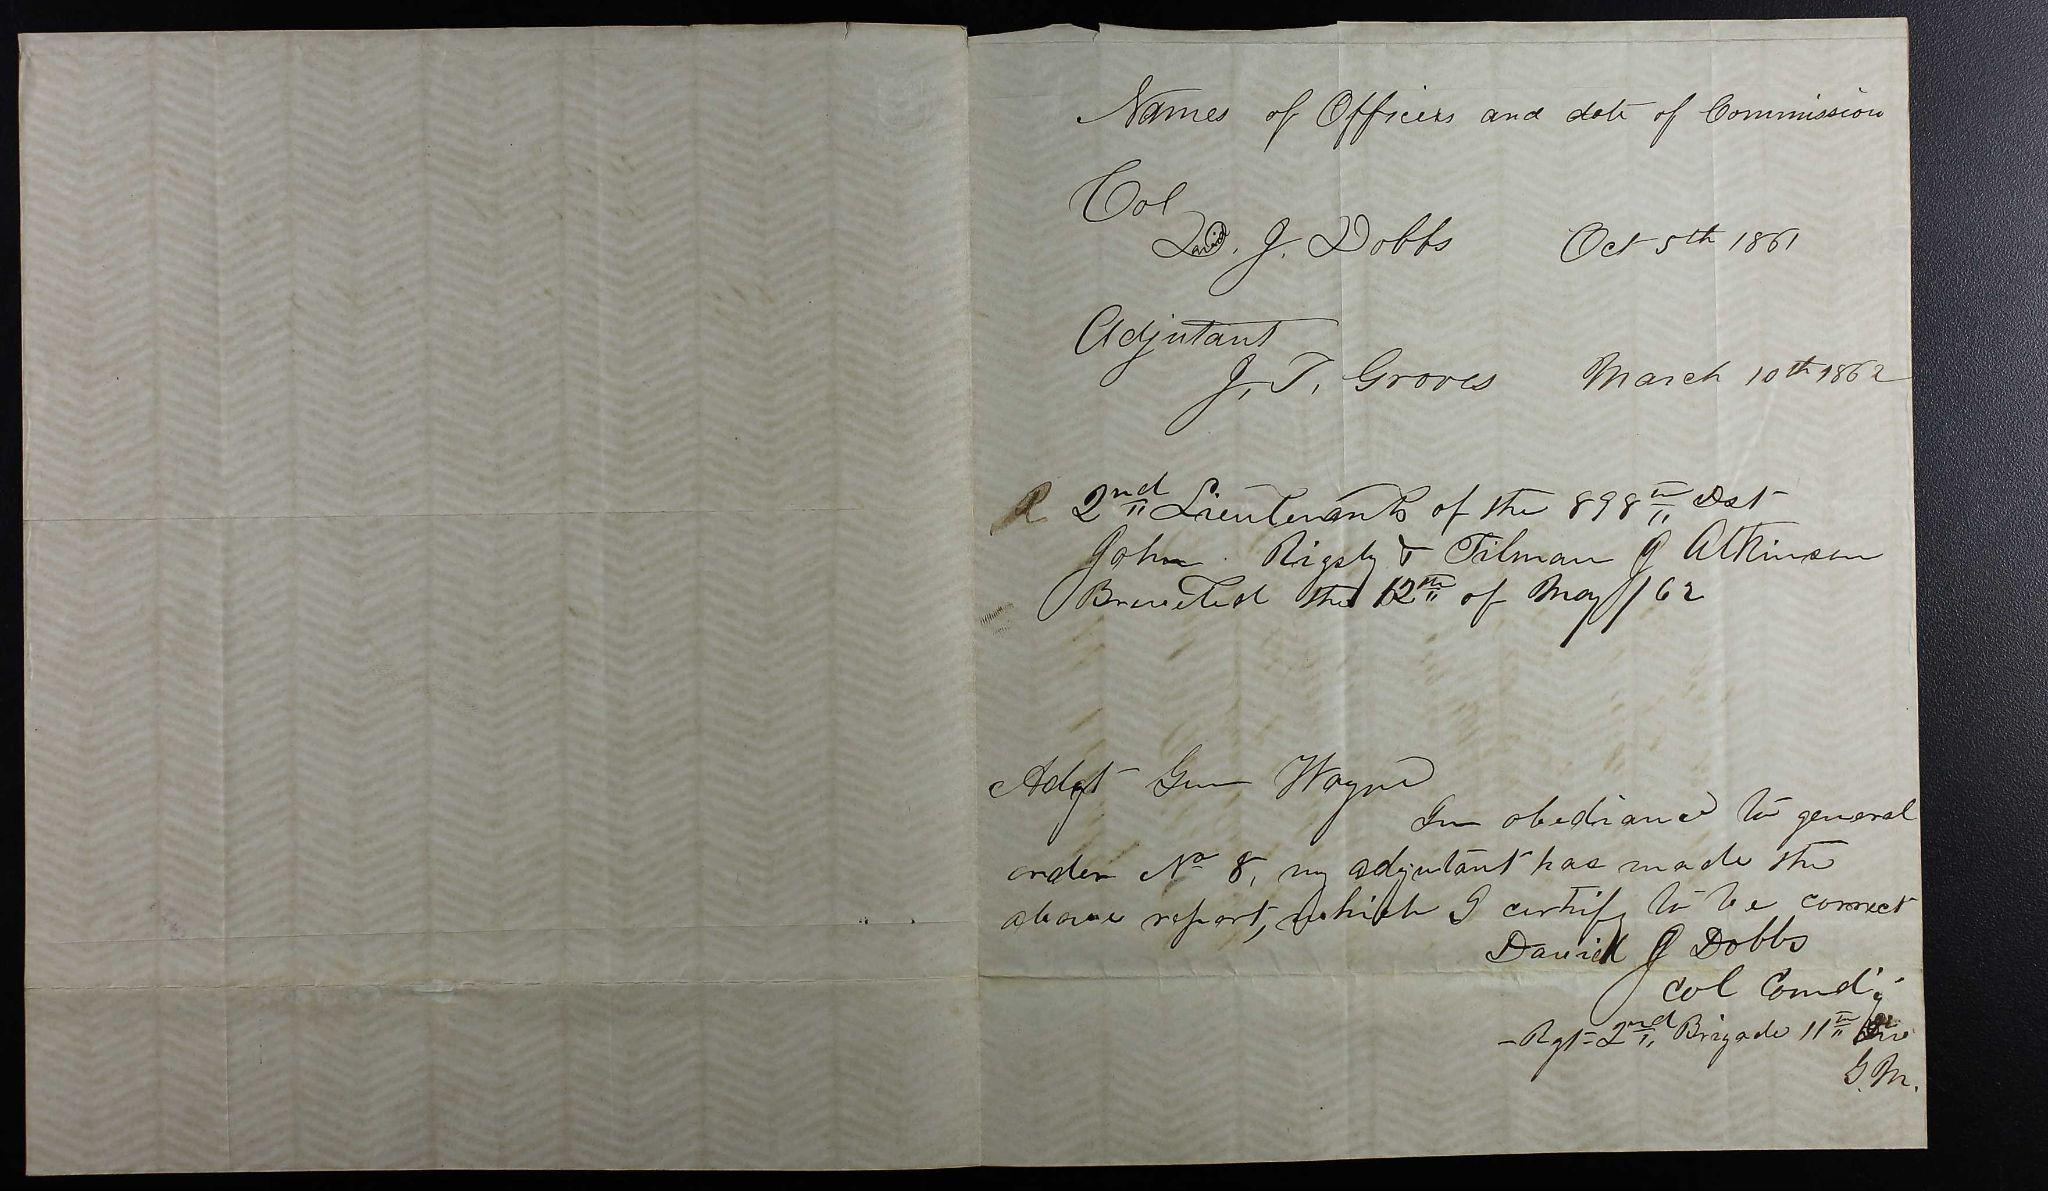 Names of Officers and date of Commission
Col
David. J. Dobbs Oct 5th 1861
Adjutant
J. T. Groves March 10th 1862
2nd Lieutenants of the 898th Dst
John Rigsby & Tilman J Atkinson
Breveted the 12th of May /62
Adgt Gen Wayne
In obediance to general
order No 8, my adjutant has made the
above report, which I certify to be correct
David J Dobbs
Col Comd'g
- Rgt - 2nd Brigade 11th Div
G. M.